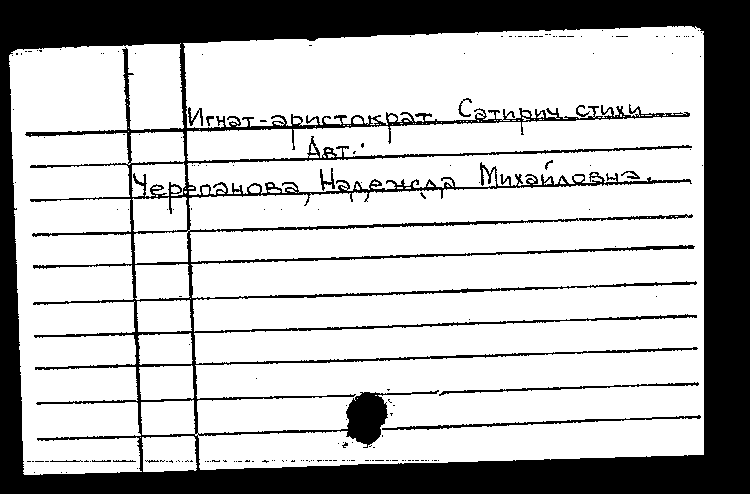 Игнат-аристократ. Сатирич стихи
Авт.:
Черепанова, Надежда Михайловна.